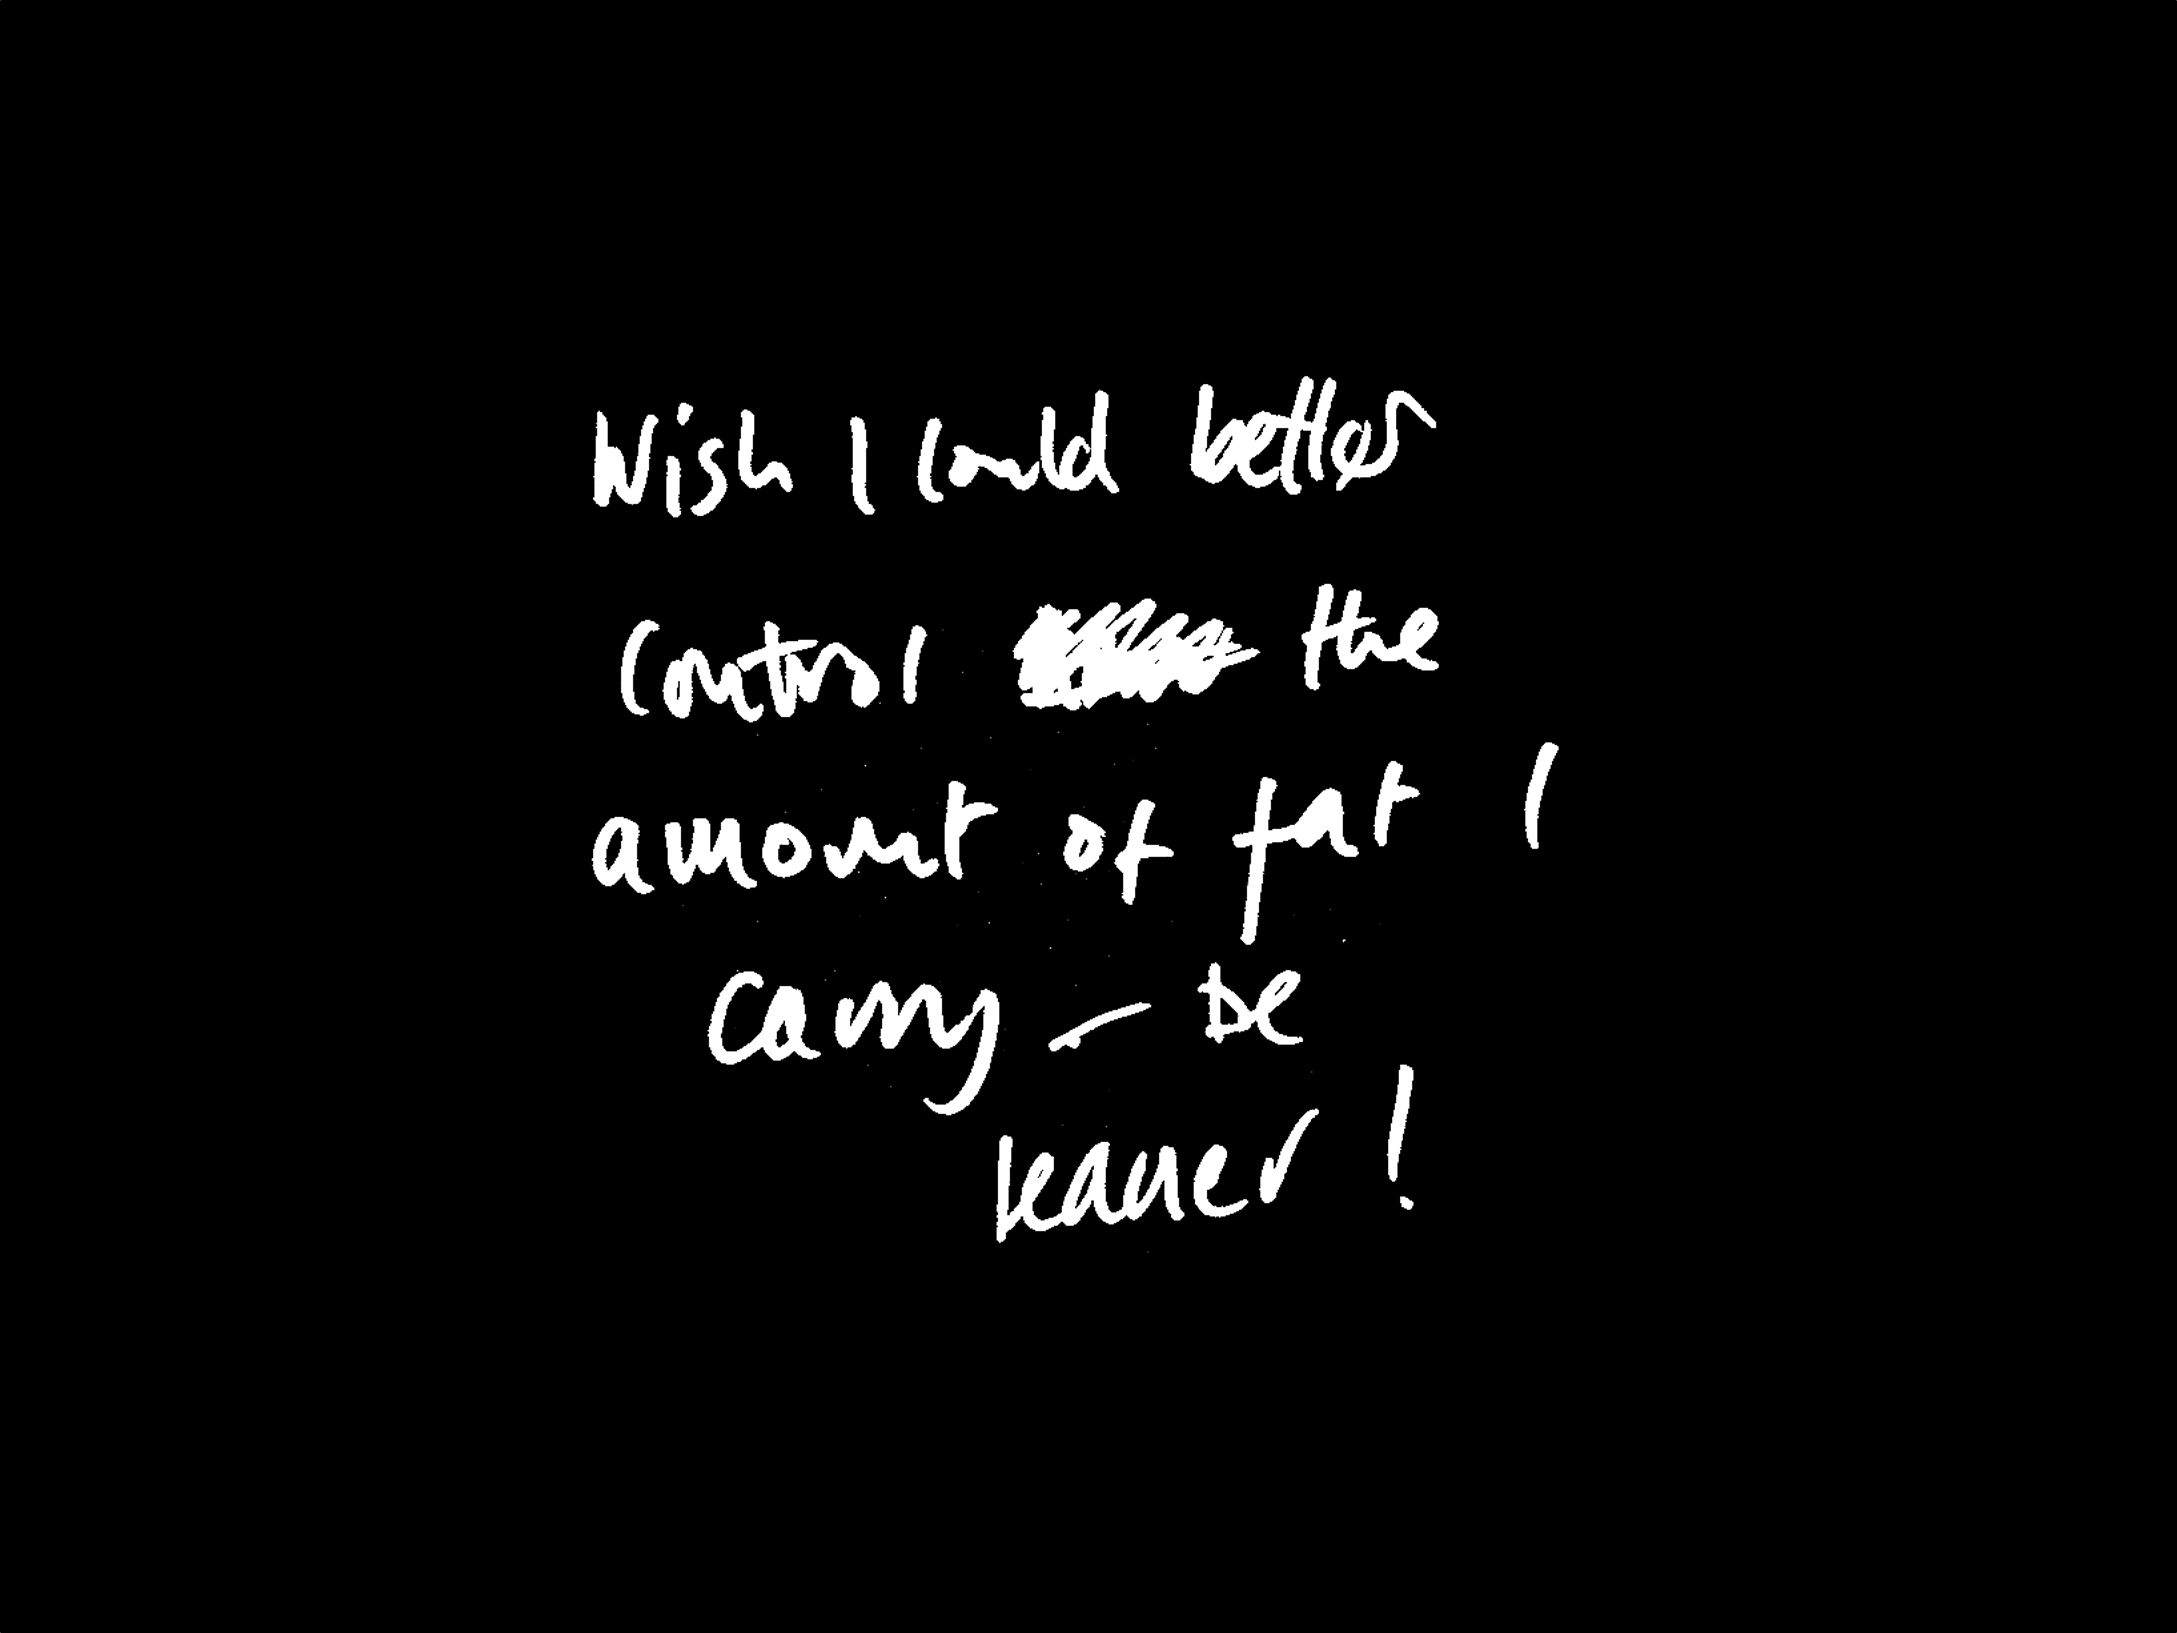 Wish I could better
control the
amount of fat I
carry - be
leaner!